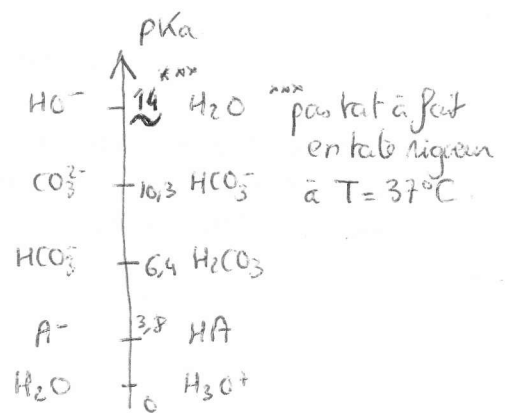 pKa
HO⁻ 14 *** H₂O *** pas tout à fait
en toute rigueur
CO₃²⁻ 10,3 HCO₃⁻ à T = 37°C
HCO₃⁻ 6,4 H₂CO₃
A⁻ 3,8 HA
H₂O 0 H₃O⁺